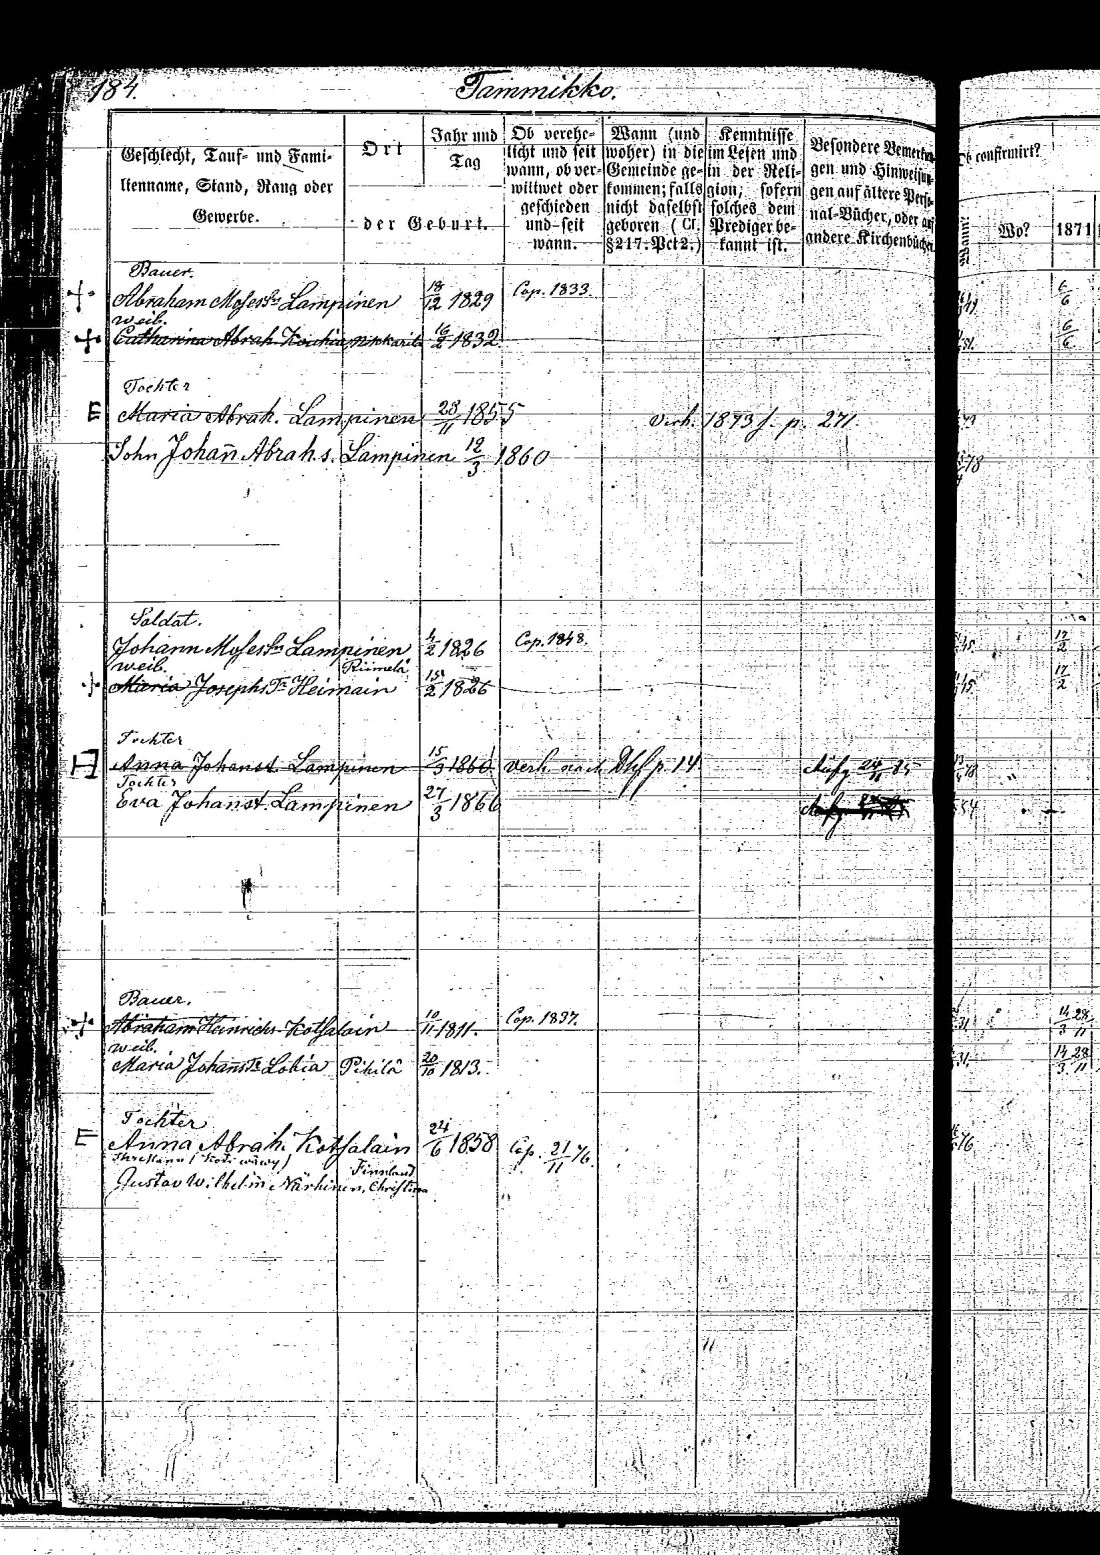 184.
Tammikko.
Geschlecht, Tauf- und Fami-
lienname, Stand, Rang oder
Gewerbe.
Ort
der Geburt.
Jahr und
Tag
Ob verehe-
licht und seit
wann, ob ver-
wittwet oder
geschieden
und seit
wann.
Wann (und
woher) in die
Gemeinde ge-
kommen; falls
nicht daselbst
geboren (Cf.
§217. Pct2.)
Kenntnisse
im Lesen und
in der Reli-
gion, sofern
solches dem
Prediger be-
kannt ist.
Besondere Bemerkun
gen und Hinweisun-
gen auf ältere Perso
nal-Bücher, oder auf
andere Kirchenbücher
Ob confirmirt?
Wann?
Wo?
1871
Bauer.
Abraham Moses Sn Lampinen 18/12 1829 Cop. 1833 6/6
weib.
Catharina Abrah. 16/2 1832 6/6
Tochter
E Maria Abrah. Lampinen 28/11 1855 Verh. 1873 f. p. 271.
Sohn Johan̄ Abrah s. Lampinen 12/3 1860 78
Soldat.
Johann Moses Sn Lampinen 4/2 1826 Cop. 1848. 45 17/2
weib. Riimelä
Maria Josephs Tr Heimäin 15/2 1826 45 17/2
Tochter
Anna Johanst. Lampinen 15/3 1860 verh. nach p. 14 85
Tochter
Eva Johanst. Lampinen 27/3 1866
Bauer.
Abraham Heinrichs Kotsalain 10/11 1811. Cop. 1837. 31 14/3 28/11
weib.
Maria Johans Tr Lobia Pikilä 20/10 1813. 31. 14/3 28/11
Tochter
E Anna Abrah. Kotsalain 24/6 1858 Cop. 21/11 76. 76
Finnland
Gustav Wilhelm Närhinen, Christina